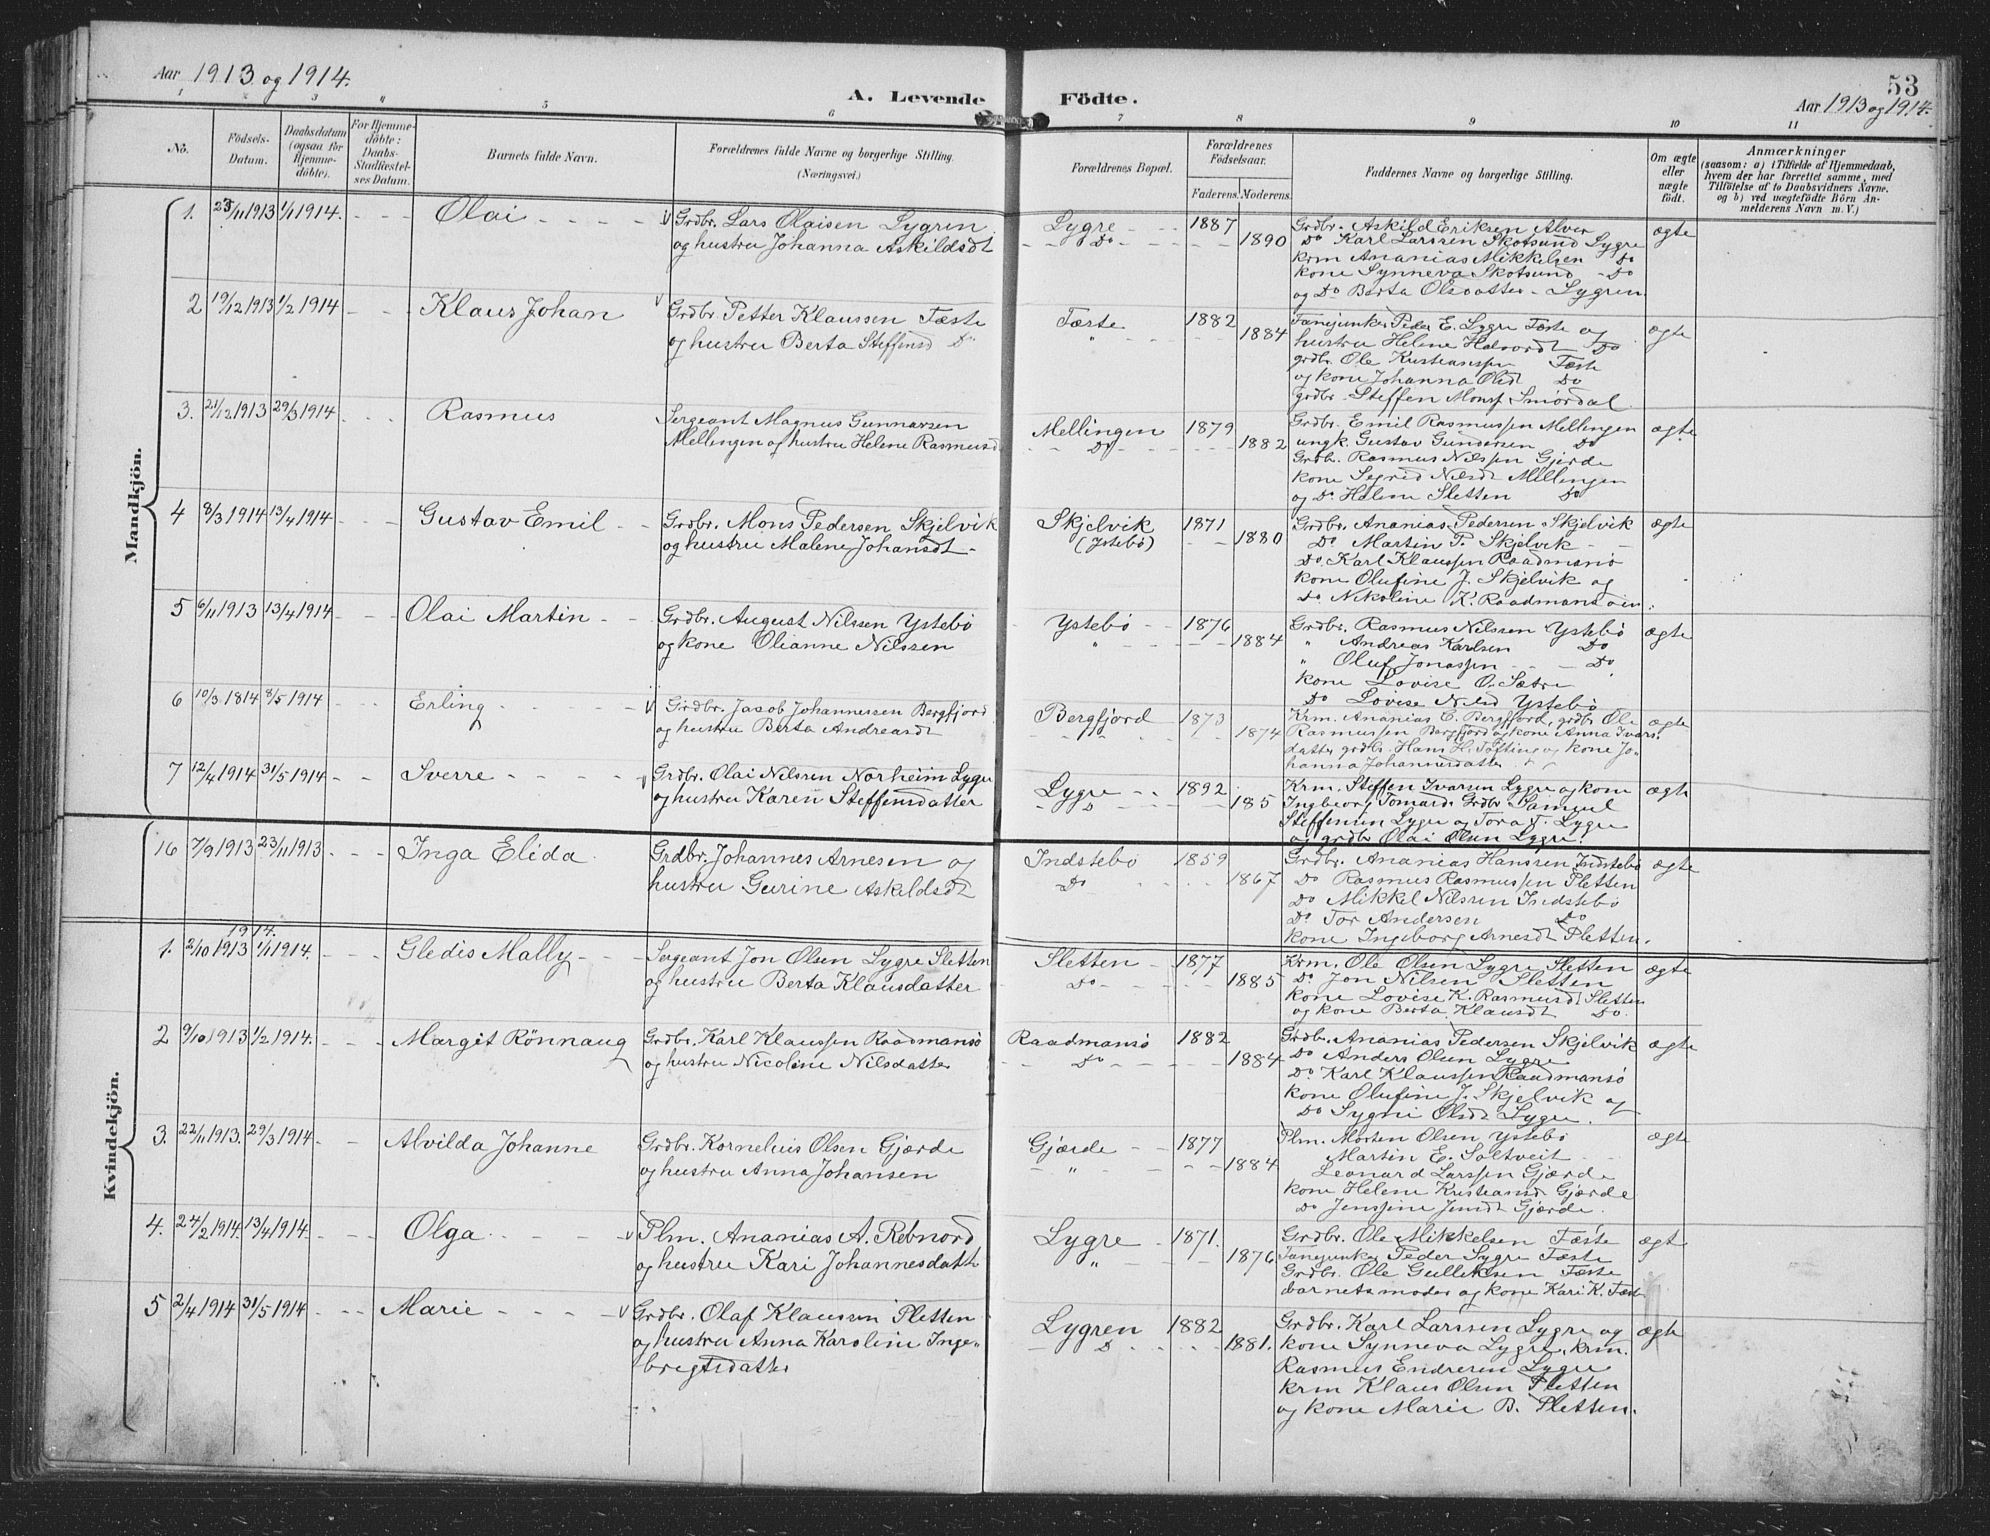 Aar 1913 og 1914.
A. Levende Födte.
53
Aar 1913 og 1914.
1 2 3 4 5 6 7 8 9 10 11
No.
Födsels-Datum.
Daabsdatum (ogsaa for Hjemmedöbte).
For Hjemmedöbte: Daabs-Stadfæstelses Datum.
Barnets fulde Navn.
Forældrenes fulde Navne og borgerlige Stilling.
(Næringsvei.)
Forældrenes Bopæl.
Forældrenes Födselsaar.
Faderens. Moderens.
Faddernes Navne og borgerlige Stilling.
Om ægte eller uægte födt.
Anmærkninger
(saasom: a) i Tilfælde af Hjemmedaab,
hvem der har forrettet samme, med
Tilföielse af to Daabsvidners Navne.
og b) ved uægtefödte Börn Anmelderens Navn m. V.)
Mandkjön.
1. 23/11 1913 1/1 1914. Olai Grdbr. Lars Olaisen Lygren
og hustru Johanna Askildsdt
Lygre 1887
Do 1890
Grdbr. Askild Eriksen Alver
Do Karl Larssen Skotsund Lygre
krm Ananias Mikkelsen Do
kone Synneva Skotsund Do
og Do Berta Olsdatter Lygren
ægte
2 19/12 1913 1/2 1914 Klaus Johan Grdbr. Petter Klaussen Tæste
og hustru Berta Steffensd Do
Tæste 1882
" 1884
Fanejunker Peder E. Lygre Tæste og
hustru Helene Halvordt Do
grdbr. Ole Kristiansen Tæste
og kone Johanna Olsd Do
grdbr. Steffen Monss Smördal
ægte
3. 21/12 1913 29/3 1914 Rasmus Sergeant Magnus Gunnarsen
Mellingen og hustru Helene Rasmusd
Mellingen 1879
Do 1882
Grdbr. Emil Rasmussen Mellingen
ungk. Gustav Gundersen Do
Grdb. Rasmus Nilssen Gjerde
kone Segred Nilsdt Mellingen
og Do Helene Sletten Do
ægte
4 8/3 1914 13/4 1914 Gustav Emil Grdbr. Mons Pedersen Skjelvik
og hustru Malene Johansdt
Skjelvik 1871
(Ystebö) 1880
Grdbr. Ananias Pedersen Skjelvik
Do Martin P. Skjelvik
Do. Karl Klaussen Raadmansö
kone Olufine J. Skjelvik og
Do Nikoline K. Raadmansöen
ægte
5 6/11 1913 13/4 1914 Olai Martin Grdbr. August Nilssen Ystebö
og kone Olianne Nilssen
Ystebö 1876
" 1884
Grdbr. Rasmus Nilssen Ystebö
" Andreas Karlsen Do
" Oluf Jonassen Do
kone Lovise O. Sætre
Do Lovise Nilsd Ystebö
ægte
6 10/3 1814 8/5 1914 Erling Grdbr. Jacob Johannessen Bergfjord
og hustru Berta Andreasdt
Bergfjord 1873
1874
Krm. Ananias C. Bergfjord, grdbr Ole
Rasmussen Bergfjord og kone Anna Ivarsdatter grdbr. Hans H. Tofting og kone Johanna Johannesdatter
ægte
7 12/4 1914 31/5 1914 Sverre Grdbr. Olai Nilssen Norheim Lygre
og hustru Karen Steffensdatter
Lygre 1892
D 1885
Krm. Steffen Ivarsen Lygre og kone
Ingbeorg Tomasd. Grdbr. Samuel
Steffensen Lygre og Tora T. Lygre
og grdbr Olai Olsen Lygre.
ægte
Kvindekjön.
16 7/9 1913 23/11 1913 Inga Elida Grdbr. Johannes Arnesen og
hustru Gurine Askildsdt
Indstebö 1859
Do 1867
Grdbr. Ananias Hanssen Indstebö
Do Rasmus Rasmussen Sletten
Do Mikkel Nilssen Indstebö
Do Tor Andersen Do
kone Ingeborg Arnesdt Sletten.
ægte
1914.
1. 2/10 1913 1/1 1914. Gledis Mally Sergeant Jon Olsen Lygre Sletten
og hustru Berta Klausdatter
Sletten 1877
Do 1885
Krm. Ole Olsen Lygre Sletten
Do. Jon Nilsen Sletten
kone Lovise K. Rasmusdt Sletten
og kone Berta Klausdt Do.
ægte
2 9/10 1913 1/2 1914. Margit Rönnaug Grdbr. Karl Klaussen Raadmansö
og hustru Nicoline Nilsdatter
Raadmansö 1882
Do 1884
Grdbr. Ananias Pedersen Skjelvik
Do Anders Olsen Lygre
Do. Karl Klaussen Raadmansö
kone Olufine J. Skjelvik og
Do Sygni Olsdt Lygre.
ægte
3. 22/11 1913. 29/3 1914 Alvilda Johanne Grdbr. Kornelius Olsen Gjærde
og hustru Anna Johansen
Gjærde 1877
" 1884
Plm. Morten Olsen Ystebö
Martin E. Soltveit
Leonard Larssen Gjærde
kone Helene Kristiansd Gjærde
Do Jenssine Jensdt Gjærde.
ægte
4. 24/2 1914. 13/4 1914 Olga Plm. Ananias A. Rebnord
og hustru Kari Johannesdatt
Lygre 1871.
" 1876
Grdbr. Ole Mikkelsen Tæste
Fanejunker Peder Lygre Tæste
Grdbr. Ole Gulleksen Tæste
barnets moder og kone Kari K. Tæste
ægt
5 2/4 1914 31/5 1914 Marie Grdbr. Olaf Klaussen Sletten
og hustru Anna Karoline Ingebrigtsdatter
Lygren 1882
D 1881.
Grdbr. Karl Larssen Lygre og
kone Synneva Lygre, krm.
Rasmus Endresen Lygre
krm Klaus Olsen Sletten
og kone Marie B. Sletten.
ægte